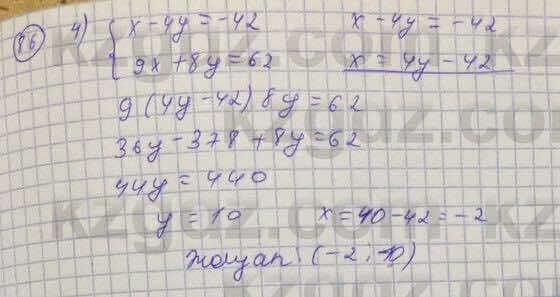 86 4) { x - 4y = -42    x - 4y = -42
9x + 8y = 62    x = 4y - 42
9 (4y - 42) 8y = 62
36y - 378 + 8y = 62
44y = 440
y = 10    x = 40 - 42 = -2
Жауап: (-2; 10)
kzgdz.com